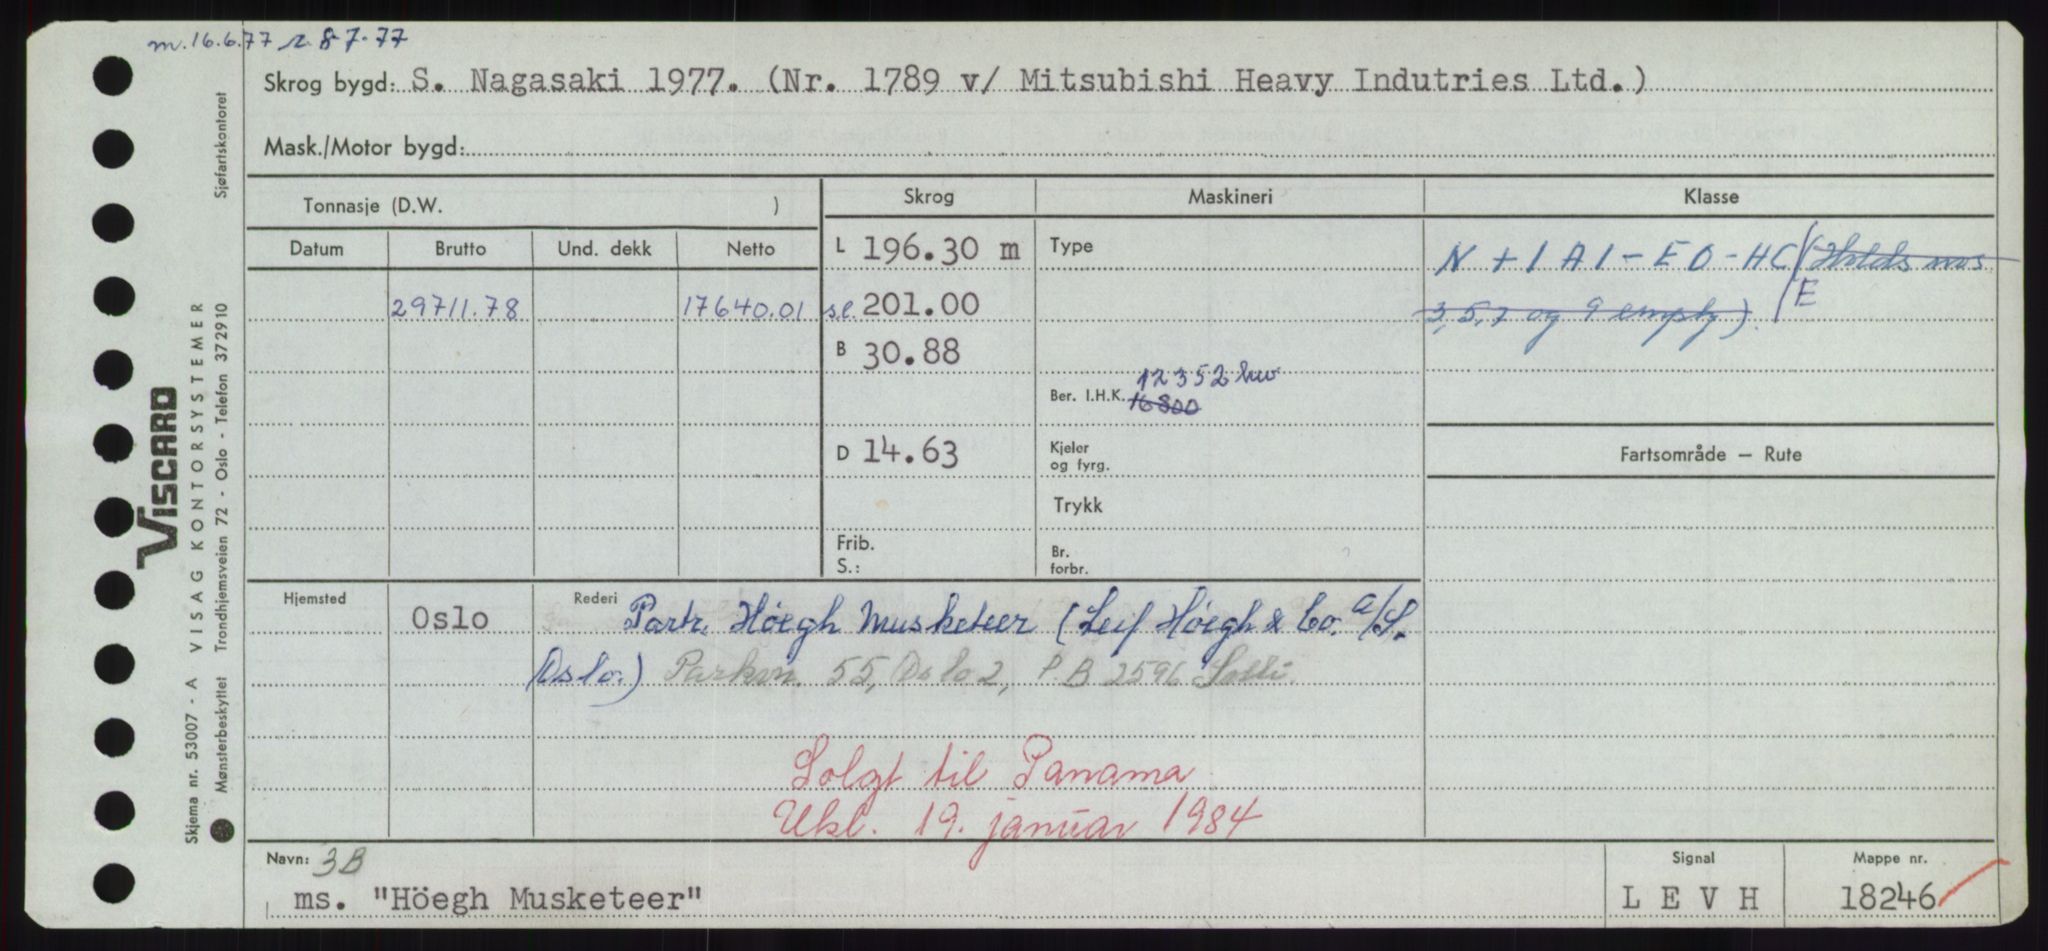 m. 16.6.77 r. 8-7-77
Skrog bygd: S. Nagasaki 1977. (Nr. 1789 v/ Mitsubishi Heavy Indutries Ltd.)
Mask./Motor bygd:
Tonnasje (D.W. )
Skrog Maskineri Klasse
Datum Brutto Und. dekk Netto
L 196.30 m
Type
N + 1 A 1 - E 0 - HC/(Holds nos
29711.78 17640.01
s.l. 201.00
3, 5, 7 og 9 empty) /E
B 30.88
12352 kw
Ber. I.H.K. 16800
D 14.63
Kjeler
og fyrg.
Fartsområde — Rute
Trykk
Frib.
S.:
Br.
forbr.
Hjemsted Oslo
Rederi Partr. Höegh Musketeer (Leif Höegh & Co. A/S.
Oslo.) Parkvn. 55, Oslo 2, P.B 2596 Solli.
Solgt til Panama
Ukl. 19. januar 1984
Navn: 3B
ms. "Höegh Musketeer"
Signal
L E V H
Mappe nr.
18246
VISCARD
Skjema nr. 53007 - A VISAG KONTORSYSTEMER
Mønsterbeskyttet Trondhjemsveien 72 - Oslo - Telefon 372910 Sjøfartskontoret